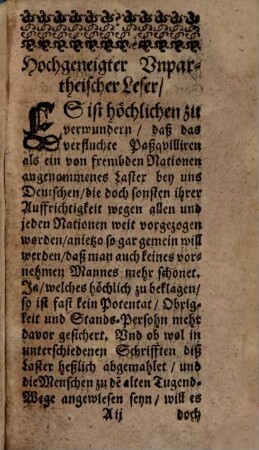 Hochgeneigter Vnpar-
theischer Leser/
ES ist höchlichen zu
verwundern / daß das
verfluchte Paßqvilliren
als ein von frembden Nationen
angenommenes Laster bey uns
Deutschen/die doch sonsten ihrer
Auffrichtigkeit wegen allen und
jeden Nationen weit vorgezogen
worden/anietzo so gar gemein will
werden/daß man auch keines vor-
nehmen Mannes mehr schonet.
Ja/welches höchlich zu beklagen/
so ist fast kein Potentat / Obrig-
keit und Stands-Persohn mehr
davor gesichert. Vnd ob wol in
unterschiedenen Schrifften diß
Laster heßlich abgemahlet / und
die Menschen zu dē alten Tugend-
Wege angewiesen seyn/ will es
Aij doch